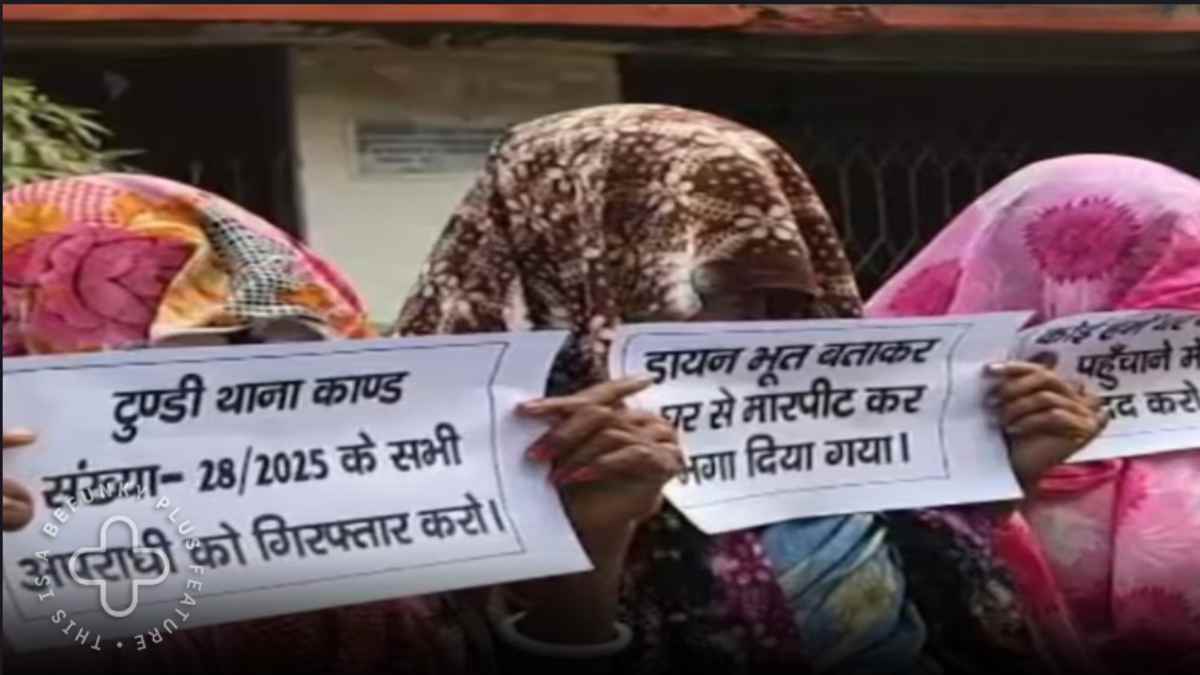 टुण्डी थाना काण्ड
संख्या- 28/2025 के सभी
अपराधी को गिरफ्तार करो।
डायन भूत बताकर
घर से मारपीट कर
भगा दिया गया।
पहुँचाने में
करो
THIS IS A BEFUNKY PLUS FEATURE